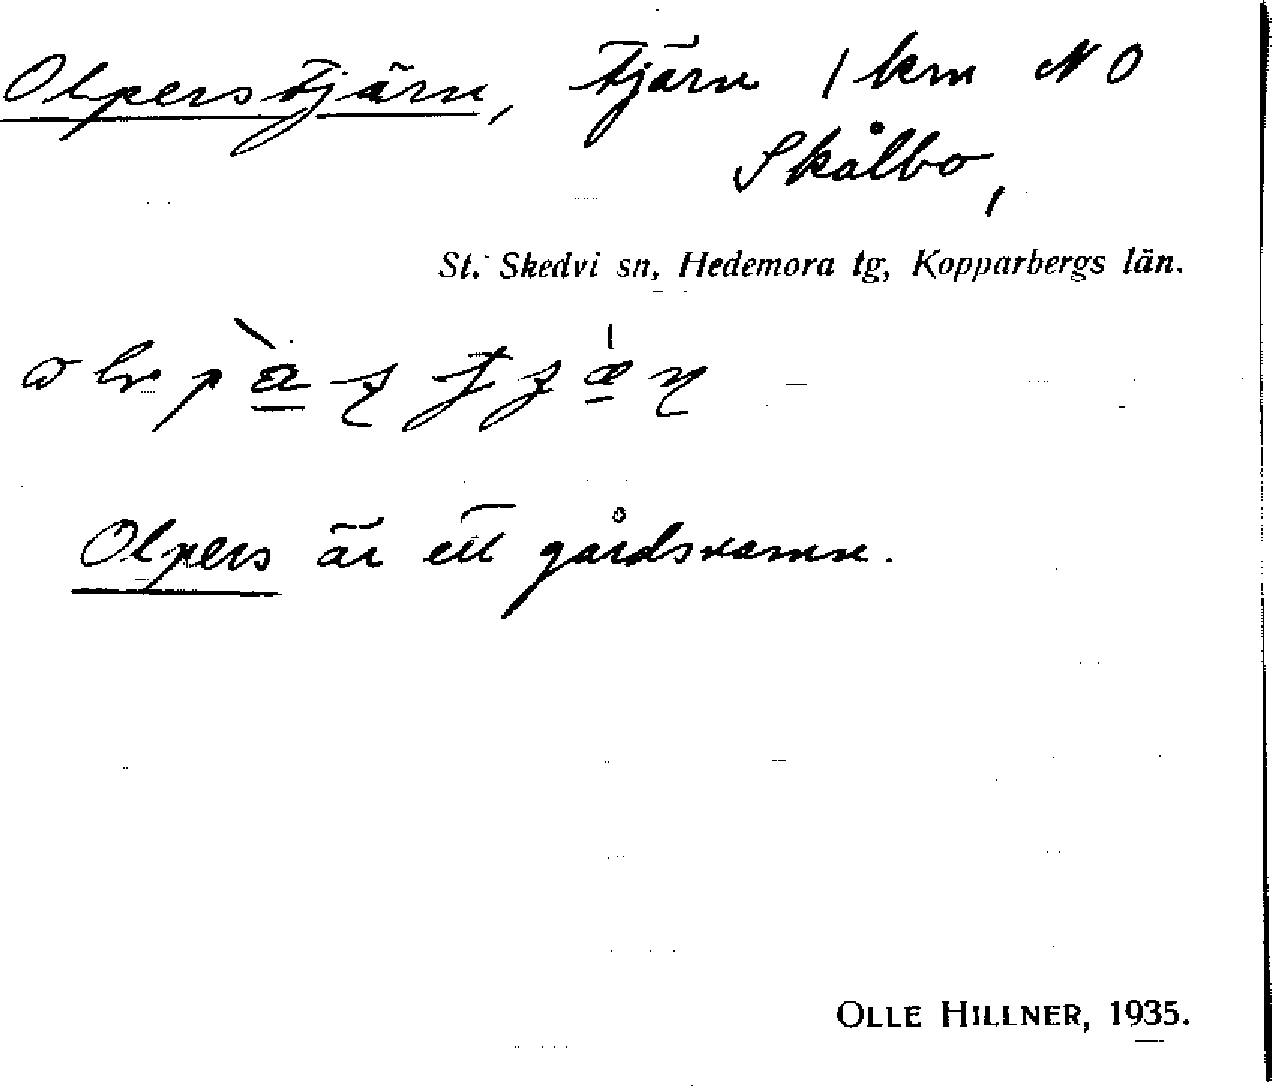 Olperstjärn, tjärn 1 km NO
Skålbo,
St. Skedvi sn, Hedemora tg, Kopparbergs län.
Olpers är ett gårdsnamn.
OLLE HILLNER, 1935.